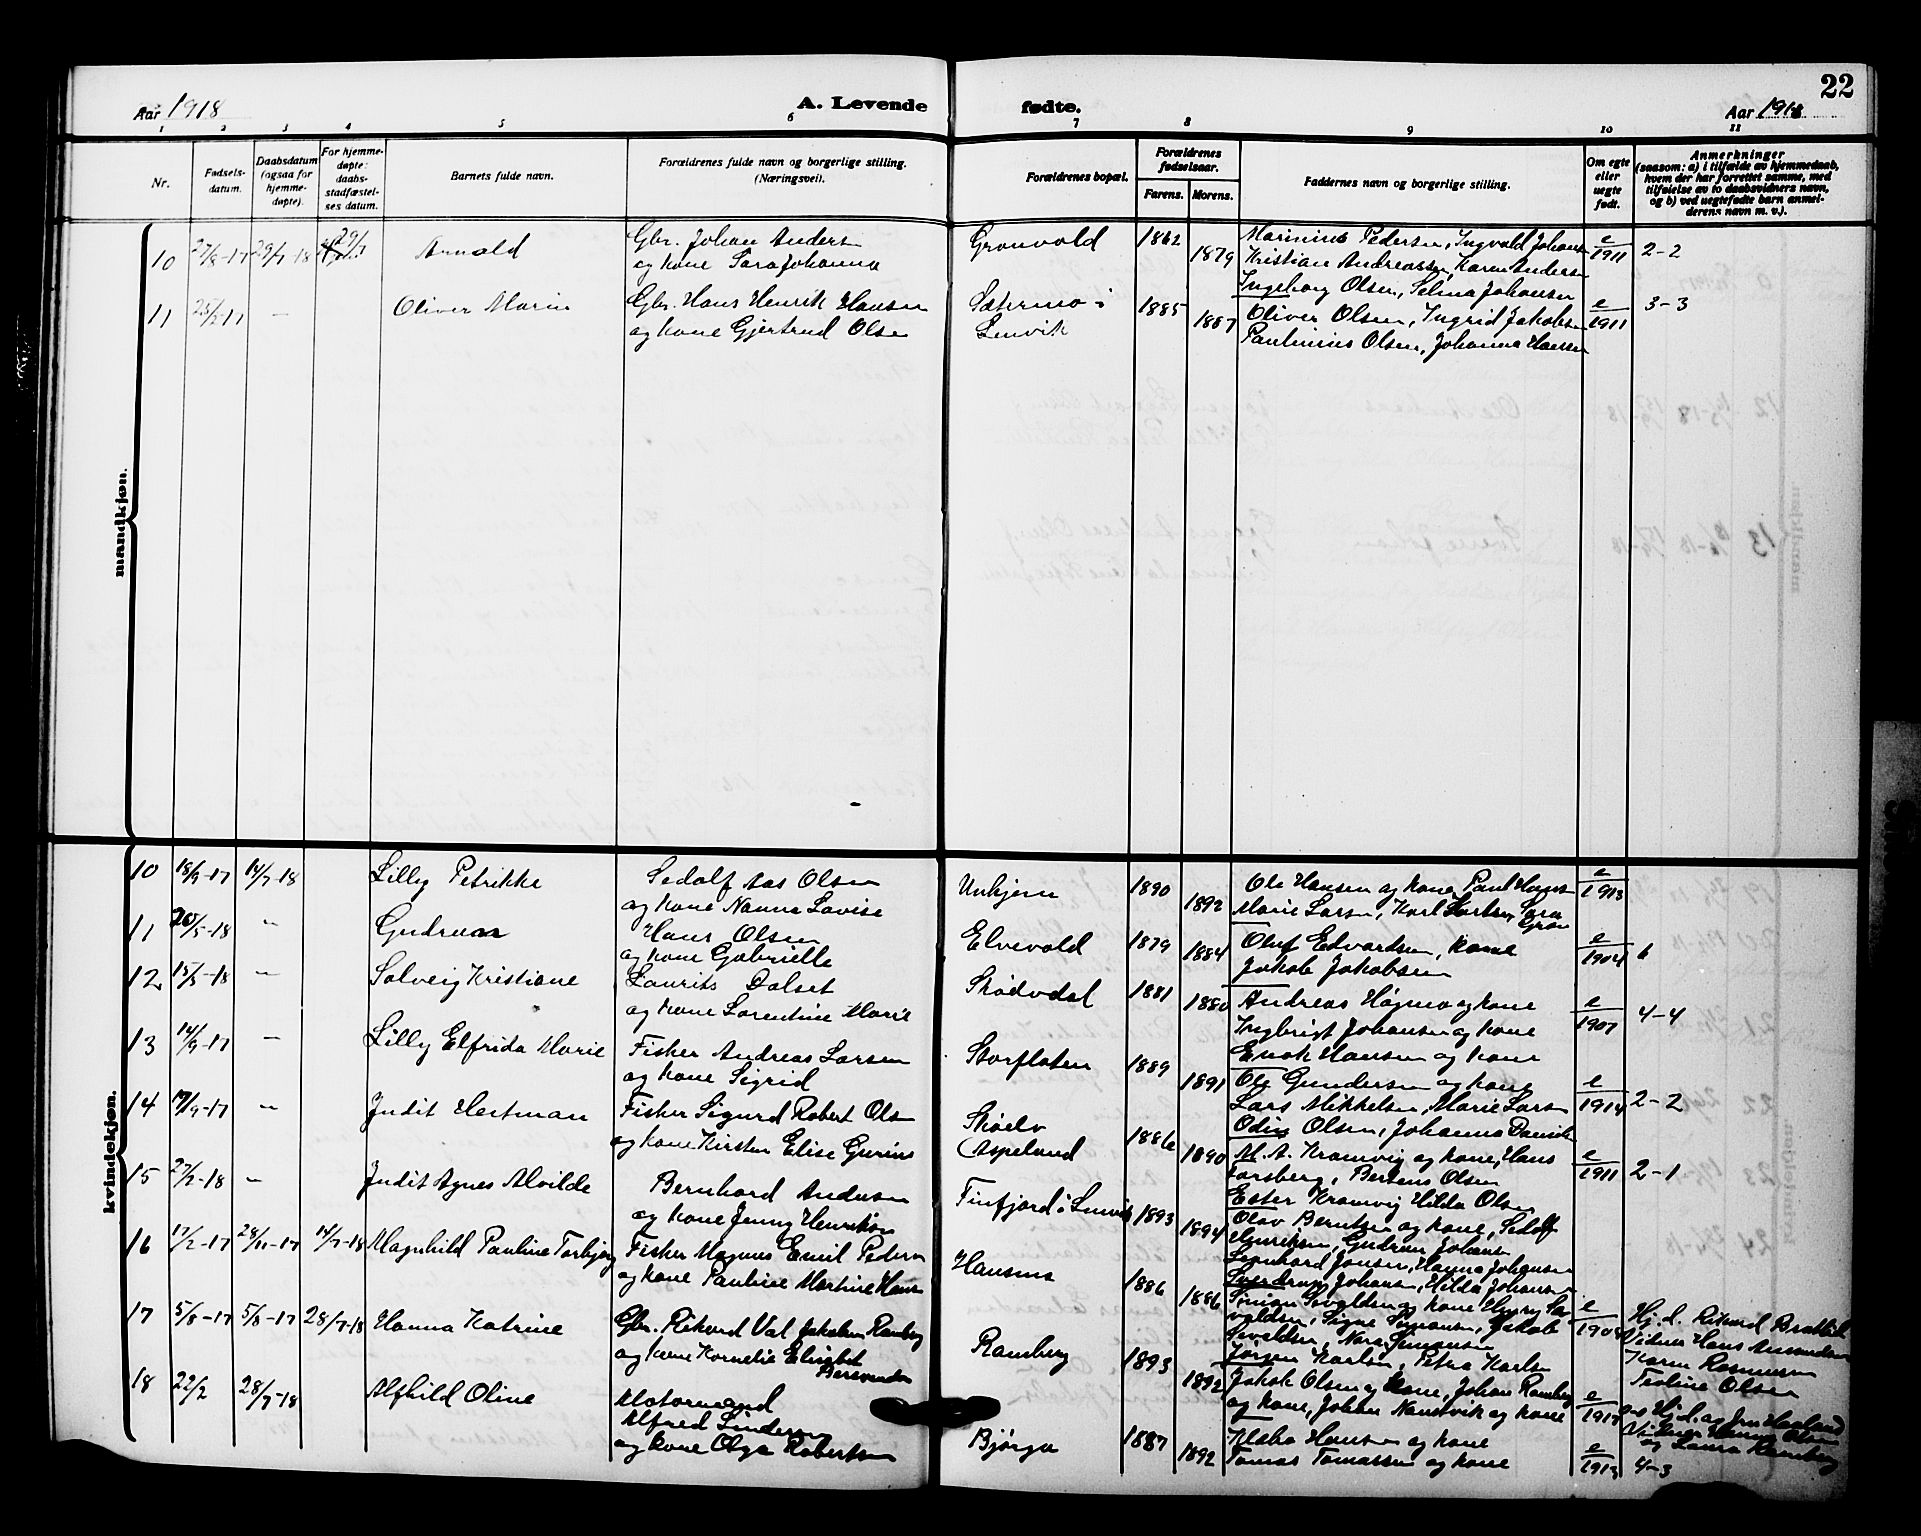 22
Aar 1918 A. Levende fødte. Aar 1918
1 2 3 4 5 6 7 8 9 10 11
Nr.
Fødsels-
datum.
Daabsdatum
(ogsaa for
hjemme-
døpte).
For hjemme-
døpte:
daabs-
stadfæstel-
ses datum.
Barnets fulde navn.
Forældrenes fulde navn og borgerlige stilling.
(Næringsvei).
Forældrenes bopæl.
Forældrenes
fødselsaar.
Farens. Morens.
Faddernes navn og borgerlige stilling.
Om egte
eller
uegte
født.
Anmerkninger
(saasom: a) i tilfælde av hjemmedaab,
hvem der har forrettet samme, med
tilføielse av to daabsvidners navn,
og b) ved uegtefødte barn anmel-
derens navn m. v.).
mandkjøn.
10 27/8-17 29/7-18 29/7 Arnold
Gbr. Johan Anders
og kone Sara Johanna
Grønvold 1862 1879
Marinius Pedersen, Ingvald Johans
Kristian Andreassen, Karen Anders
Ingeborg Olsen, Selma Johansen
e/1911 2-2
11 25/2-17 – Oliver Marin
Gbr. Hans Henrik Hansen
og kone Gjertrud Olse
Sætermo i
Lenvik
1885 1887
Oliver Olsen, Ingrid Jakobs
Paulinius Olsen, Johanna Hansen
e/1911 3-3
kvindekjøn.
10 18/9-17 14/7-18 Lilly Petrikke
Sedolf Aas Olsen
og kone Nanna Lovise
1890 1892
Ole Hansen og kone, Paul Hans
Marie Larsen, Karl
e/1913
11 20/5-18 " Gudrun
Hans Olsen
og kone Gabrielle
Elvevold 1879 1884
Oluf Edvardsen, kone
Jakob Jakobsen
e/1904 6
12 15/5-18 – Solveig Kristiane
Laurits Dalset
og kone Lorentine Marie
Skødvdal 1881 1880
Andreas Høgmo og kone
Ingbrigt Johansen og kone
Enok Hansen og kone
e/1907 4-4
13 14/9-17 – Lilly Elfrida Marie
Fisker Andreas Larsen
og kone Sigrid
Storfloten 1889 1891
Ole Gundersen og kone
Lars Mikkelsen, Marie Lars
Odin Olsen, Johanna
e/1914 2-2
14 17/9-17 " Judit Hertman
Fisker Sigurd Robert Ols
og kone Kirsten Elise
Skøelv
Aspelund
1886 1890
M. A. Kramvig og kone, Hans
Forsberg, Bertens Olsen
Ester Kramvig Hilda Olsen
e/1911 2-1
15 27/2-18 – Judit Agnes Alvilde
Bernhard Andersen
og kone Jenny Henriksen
Finfjord i Lenvik 1893 1894
Olav Berntsen og kone, Sedolf
Henriksen, Gudrun Johans
Leonhard Jensen, Hanna Johansen
16 17/2-17 28/11-17 14/7-18 Magnhild Pauline Torbjørg
Fisker Magnus Emil Peders
og kone Pauline Martine Hans
Hansnes 1886 1886
Sverdrup Johansen, Hilda Johansen
Simon Sivaldsen og kone Henry Si-
valdsen, Signe Simonsen, Jakob
Sivaldsen, Nora Simonsen
17 5/8-17 5/8-17 28/7-18 Hanna Katrine
Gbr. Rikard Val Jakobsen Ramberg
og kone Kornelie Elisabet
Ramberg 1893 1892
Jørgen Karlsen, Petra Karlsen
Jakob Olsen og kone, Johan Ramberg
og kone, Johan Nansvik og kone
Hj. d. Rikard
Vidner Hans Amundsen
Karen Rasmussen
Teoline Olsen
og Laura Ramberg
18 22/2 28/7-18 Alfhild Oline
Motormand
Alfred Lindersen
og kone Olga Robertsen
Bjørga 1887 1892
Hansen og kone
Tomas Tomassen og kone
e/1913 4-3